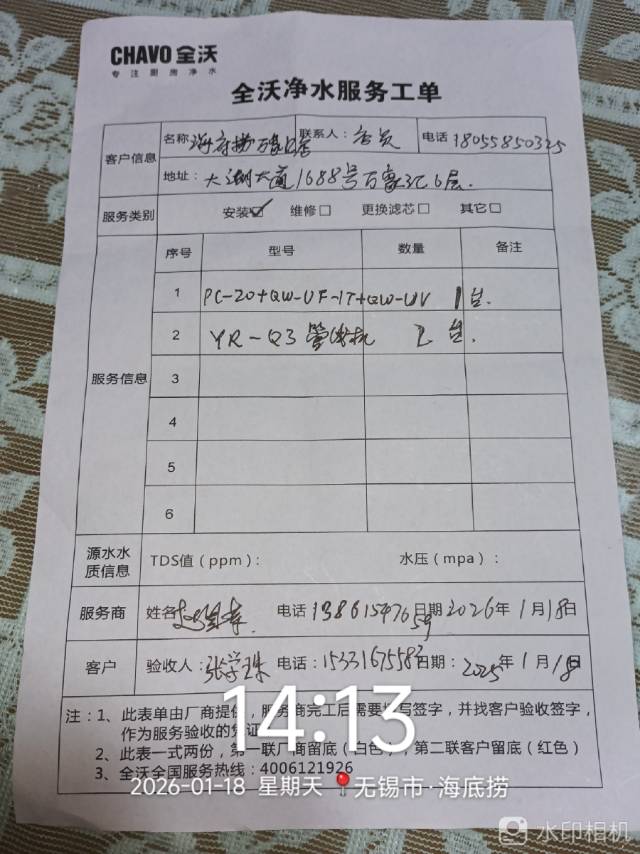 CHAVO 全沃
专注厨房净水
全沃净水服务工单
客户信息
名称 海底捞万象汇店 联系人: 电话 18055850325
地址: 太湖大道1688号万象汇6层.
服务类别 安装☑ 维修□ 更换滤芯□ 其它□
服务信息
序号 型号 数量 备注
1 PC-20+QW-UF-1T+QW-UV 1台.
2 YR-Q3管线机 2台.
3
4
5
6
源水水质信息 TDS值(ppm): 水压(mpa):
服务商 姓名 电话 13861597659 日期 2026年1月18日
客户 验收人: 张学珠 电话: 15331675583 日期: 2025年1月18日
注:1、此表单由厂商提供,服务商完工后需要填写签字,并找客户验收签字,
作为服务验收的凭证
2、此表一式两份,第一联厂商留底(白色),第二联客户留底(红色)
3、全沃全国服务热线:4006121926
14:13
2026-01-18 星期天 无锡市·海底捞
水印相机